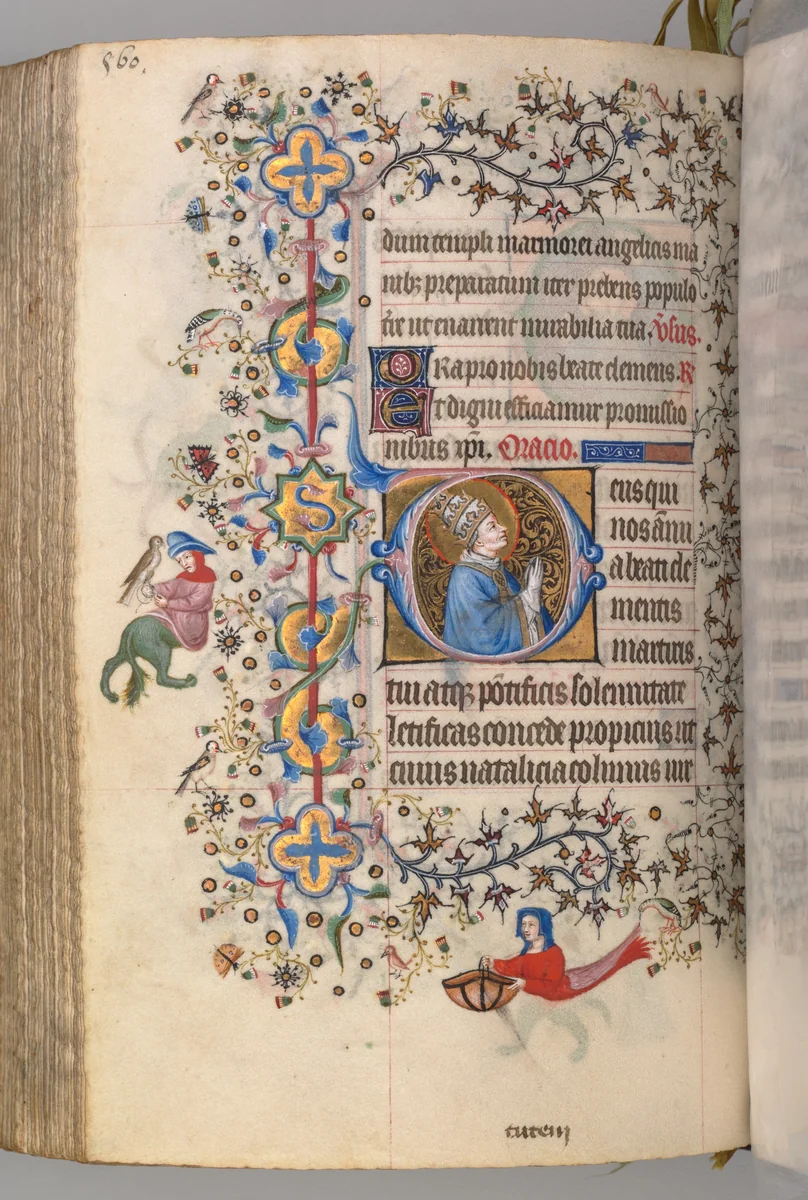 560.
dum templi marmorei angelicis ma
nibꝫ preparatum iter prebens populo
tuo ut enarrent mirabilia tua. v̓sus.
Ora pro nobis beate clemens. R
Et digni efficiamur promissio
nibus xp̄i. Oracio.
S
Deus qui
nos ānu
a beati cle
mentis
martiris
tui atqꝫ pōtificis solennitate
letificas concede propicius ut
cuius natalicia colimus uir
tutem